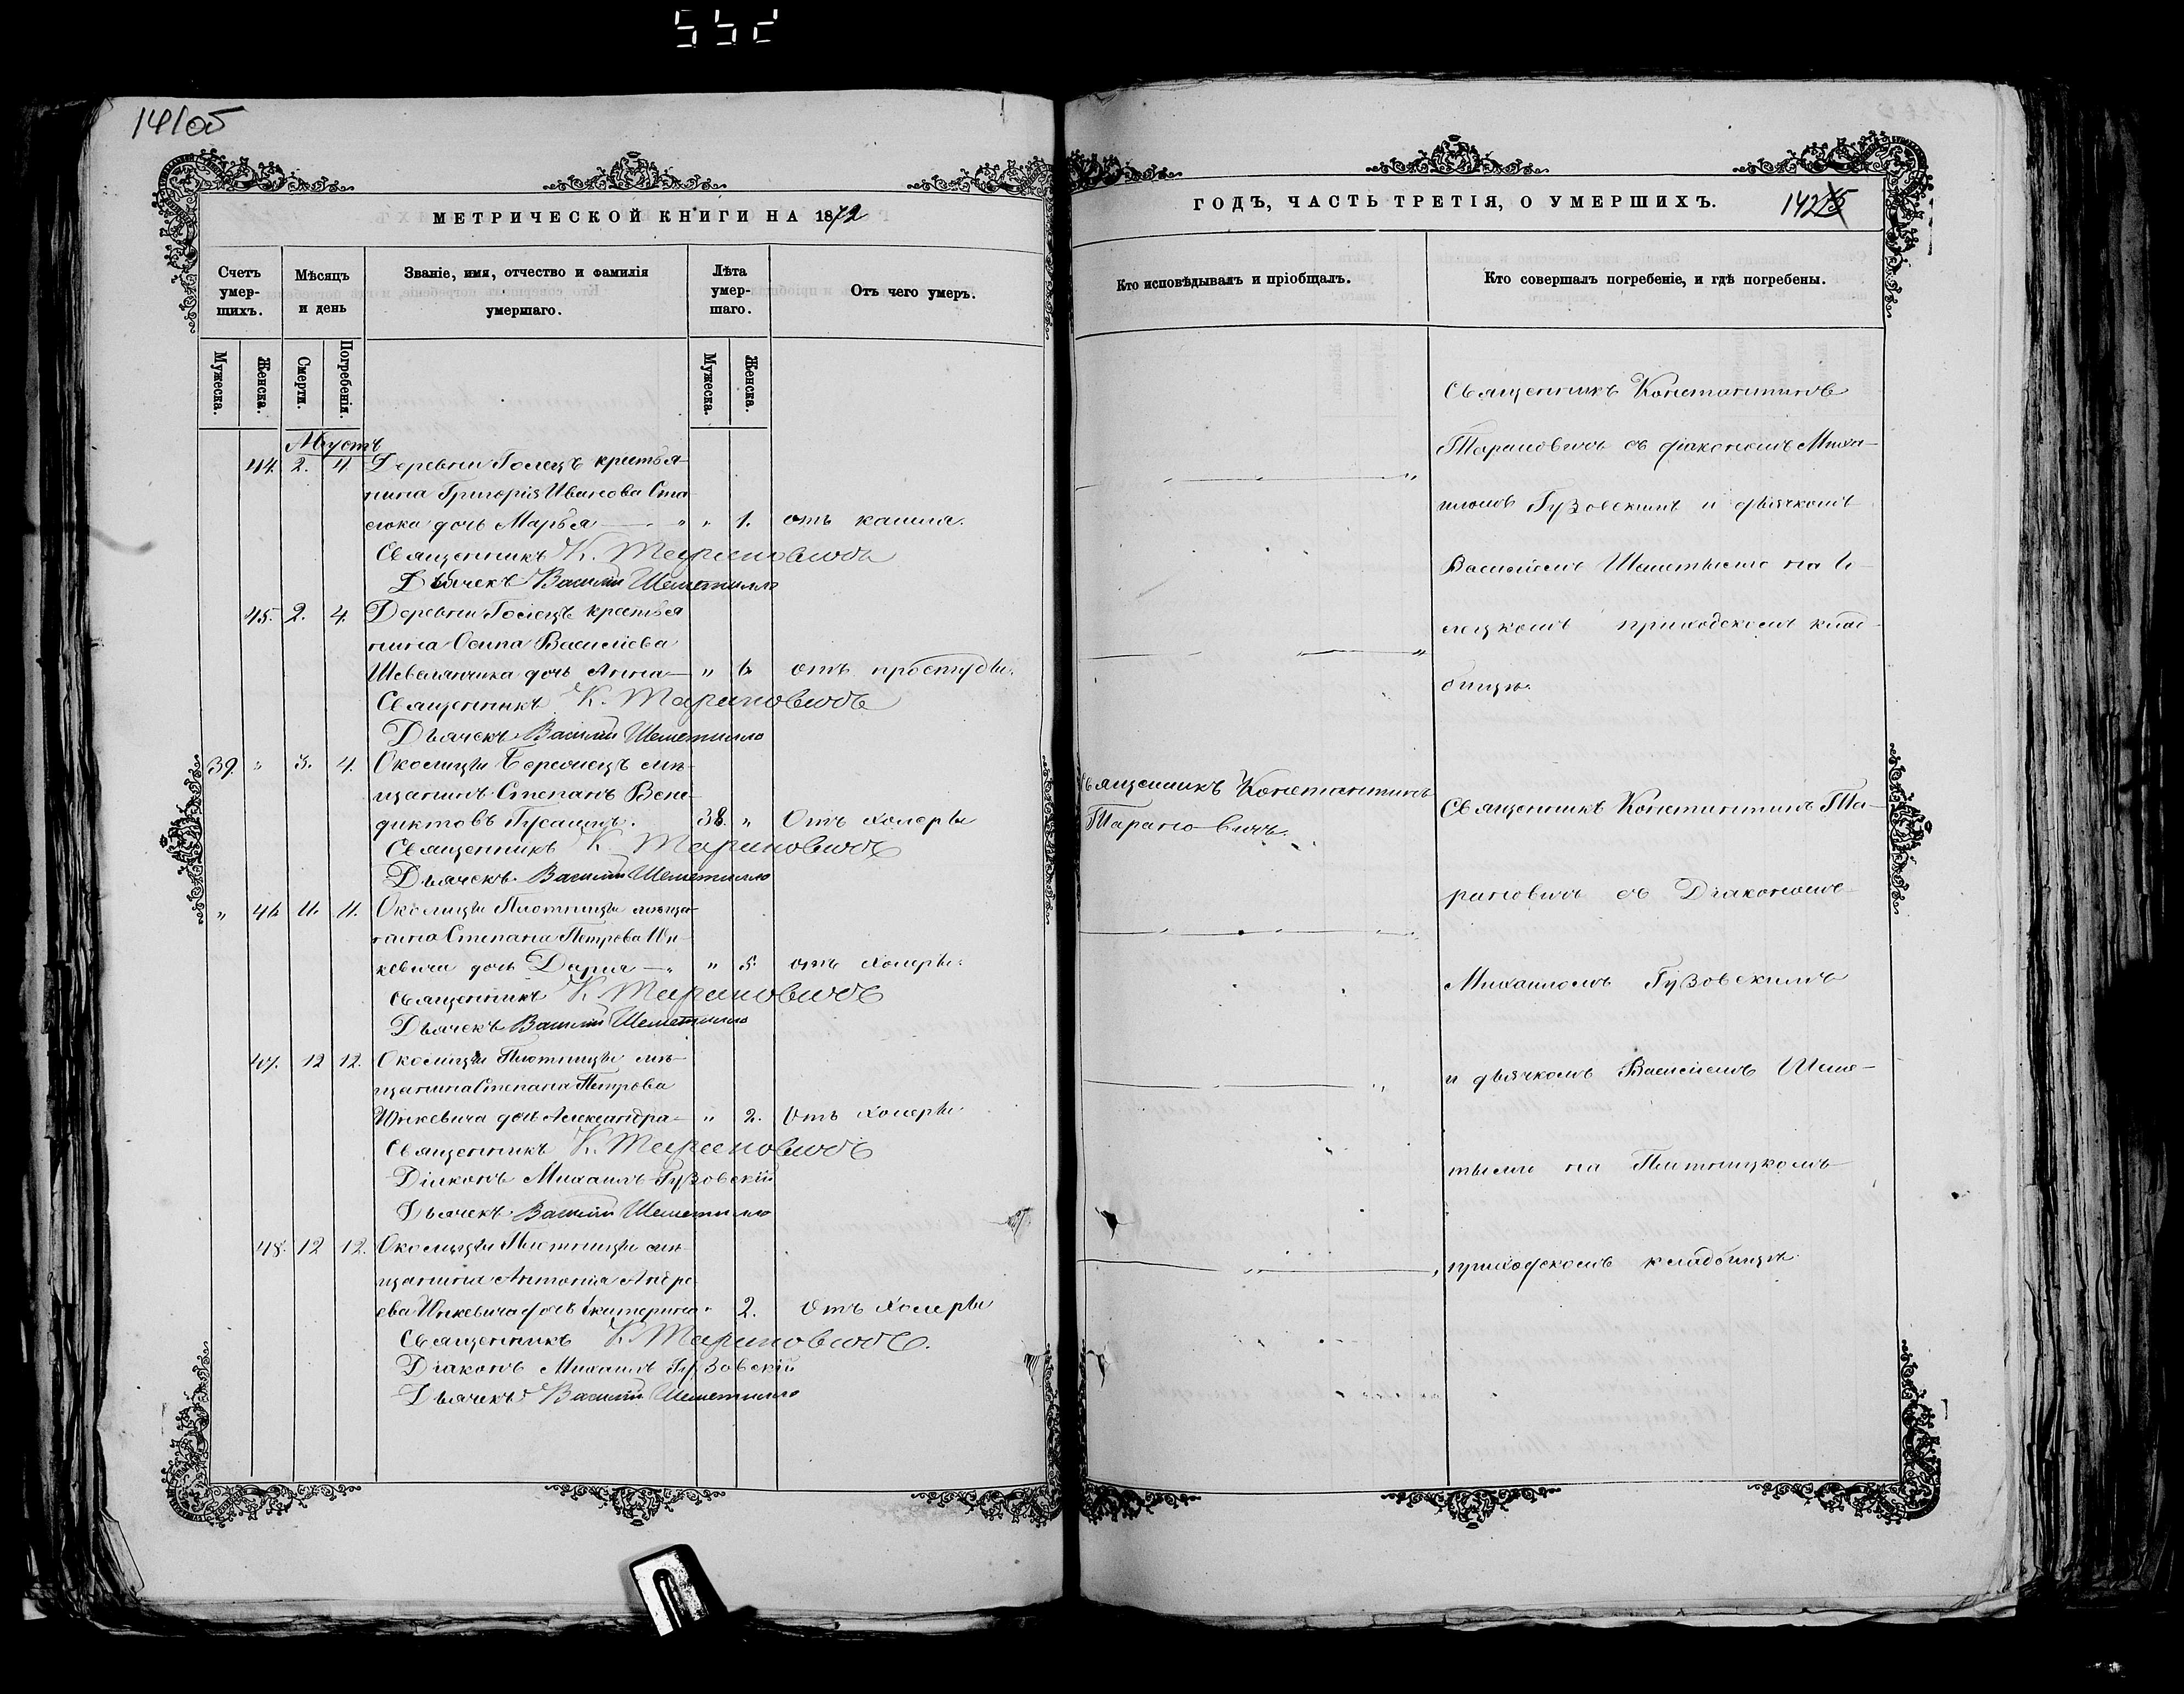 552
14105
МЕТРИЧЕСКОЙ КНИГИ НА 1872
Счетъ умер-шихъ.
Мѣсяцъ и день
Званіе, имя, отчество и фамилія умершаго.
Лѣта умер-шаго.
Отъ чего умеръ.
Мужеска.
Женска.
Смерти.
Погребенія.
Мужеска.
Женска.
Августъ
44. 2. 4 Деревни Голецъ крестья-
нина Григорія Иванова Ста
сюка дочь Марья — " " 1. отъ кашля.
Священникъ К. Тарановичъ
Дьячекъ Василій Шеметилло
45. 2. 4. Деревни Голецъ крестья
нина Осипа Василіева
дочь Анна — " отъ простуды.
Священникъ К. Тарановичъ
Дьячекъ Василій Шеметилло
39. " 3. 4. Околицы мѣ-
щанинъ Степанъ Вене-
диктовъ 38. " Отъ холеры
Священникъ К. Тарановичъ
Дьячекъ Василій Шеметилло
" 46 11. 11. Околицы Плотницы мѣща-
нина Степана Петрова Юн-
кевича дочь Дарія — " " 5. отъ холеры.
Священникъ К. Тарановичъ
Дьячекъ Василій Шеметилло
47. 12 12. Околицы Плотницы мѣ-
щанина Степана Петрова
Юнкевича дочь Александра — " 2. Отъ холеры
Священникъ К. Тарановичъ
Діаконъ Михаилъ Гузовскій
Дьячекъ Василій Шеметилло
48. 12 12. Околицы Плотницы мѣ-
щанина Антонія Андре
ева Юнкевича дочь Екатерина " 2. Отъ холеры
Священникъ К. Тарановичъ.
Діаконъ Михаилъ Гузовскій
Дьячекъ Василій Шеметилло
ГОДЪ, ЧАСТЬ ТРЕТІЯ, О УМЕРШИХЪ.
Кто исповѣдывалъ и пріобщалъ.
Кто совершалъ погребеніе, и гдѣ погребены.
Священникъ Константинъ
Тарановичъ.
Священникъ Константинъ
Тарановичъ съ діакономъ Миха-
иломъ Гузовскимъ и дьячкомъ
Василіемъ на
приходскомъ клад-
бищѣ.
Священникъ Константинъ Та-
рановичъ съ Діакономъ
Михаиломъ Гузовскимъ
и дьячкомъ Василіемъ Шеме-
на Плотницкомъ
приходскомъ кладбищѣ.